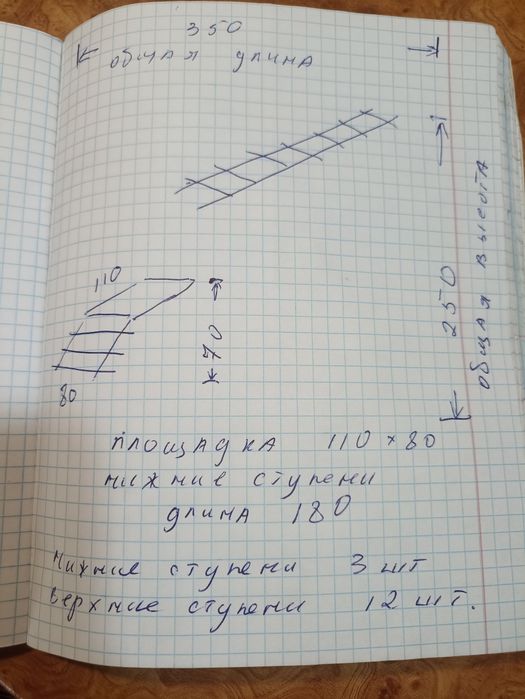 350
общая длина
110
70
80
250
общая высота
площадка 110 × 80
нижние ступени
длина 180
нижние ступени 3 шт
верхние ступени 12 шт.